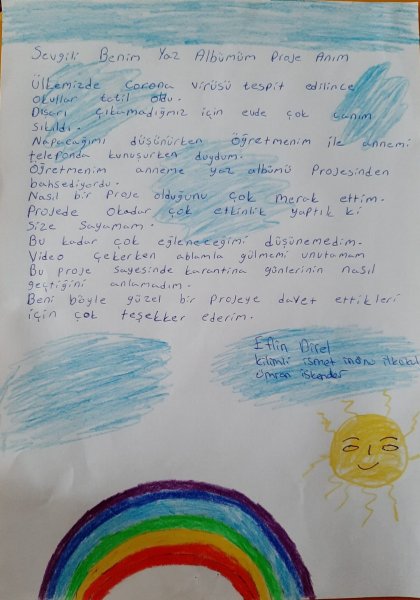 Sevgili Benim Yaz Albümüm Proje Anım
Ülkemizde Corona virüsü tespit edilince
okullar tatil oldu.
Dışarı çıkamadığımız için evde çok canım
sıkıldı.
Napacağımı düşünürken Öğretmenim ile annemi
telefonda konuşurken duydum.
Öğretmenim anneme yaz albümü Projesinden
bahsediyordu.
Nasıl bir Proje olduğunu çok merak ettim.
Projede okadar çok etkinlik yaptık ki
Size Sayamam.
Bu kadar çok eğleneceğimi düşünemedim.
Video çekerken ablamla gülmemi unutamam
Bu proje sayesinde karantina günlerinin nasıl
geçtiğini anlamadım.
Beni böyle güzel bir projeye davet ettikleri
için çok teşekker ederim.
Eflin Direl
kilimli ismet inönü ilkokul
ümran iskender